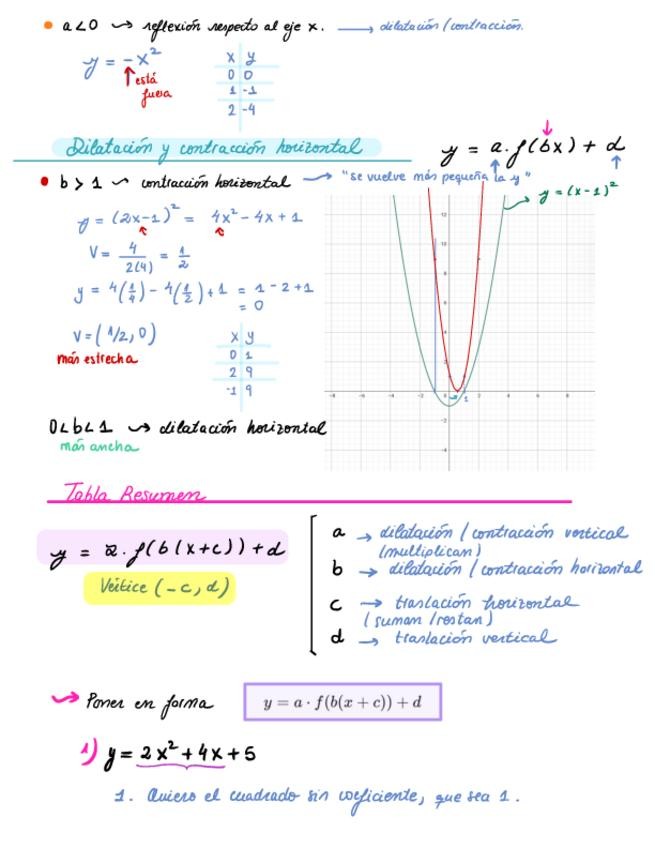 • a<0 ⇝ reflexión respecto al eje x. → dilatación/contracción.
y = -x²
está
fuera
x y
0 0
1 -1
2 -4
Dilatación y contracción horizontal
y = a.f(bx) + d
• b > 1 ⇝ contracción horizontal → "se vuelve más pequeña la y"
y = (x-1)²
y = (2x-1)² = 4x² - 4x + 1
V = 4/2(4) = 1/2
y = 4(1/4) - 4(1/2) + 1 = 1 - 2 + 1
= 0
V = (1/2, 0)
más estrecha
x y
0 1
2 9
-1 9
12
10
8
6
4
2
-8 -6 -4 -2 0 1 2 4 6 8
-2
-4
0<b<1 ⇝ dilatación horizontal
más ancha
Tabla Resumen
y = a.f(b(x+c))+d
Vértice (-c, d)
a → dilatación/contracción vertical
(multiplican)
b → dilatación/contracción horizontal
c → traslación horizontal
(suman/restan)
d → traslación vertical
⇝ Poner en forma y = a · f(b(x + c)) + d
1) y = 2x² + 4x + 5
1. Quiero el cuadrado sin coeficiente, que sea 1.